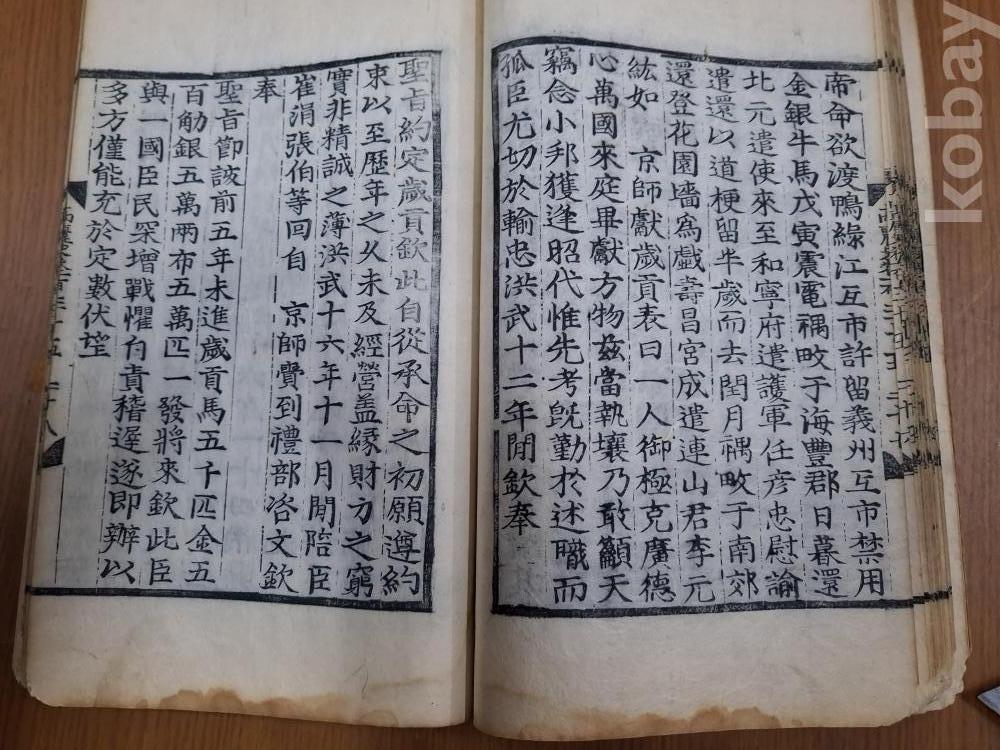 帝命欲渡鴨緑江互市許留義州互市禁用
金銀牛馬戊寅震電禑畋于海豐郡日暮還
北元遣使來至和寧府遣護軍任彦忠慰諭
遣還以道梗留半歲而去閏月禑畋于南郊
還登花園墻爲戲壽昌宮成遣連山君李元
紘如 京師獻歲貢表曰一人御極克廣德
心萬國來庭畢獻方物茲當執壤乃敢籲天
竊念小邦獲逢昭代惟先考旣勤於述職而
孤臣尤切於輸忠洪武十二年閒欽奉
聖旨約定歲貢欽此自從承命之初願遵約
束以至歷年之久未及經營盖緣財力之窮
實非精誠之薄洪武十六年十一月閒陪臣
崔涓張伯等回自 京師賫到禮部咨文欽
奉
聖旨節該前五年未進歲貢馬五千匹金五
百觔銀五萬兩布五萬匹一發將來欽此臣
與一國臣民深增戰懼自責稽遲遂即辦以
多方僅能充於定數伏望
kobay